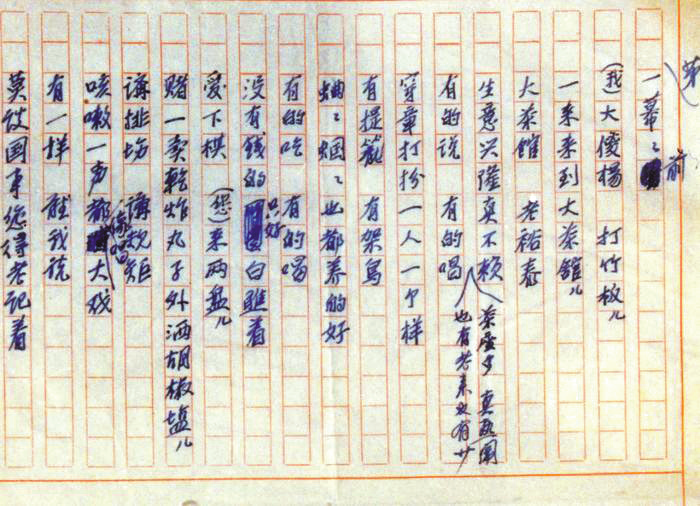 第
一幕〻前
(我)大傻楊 打竹板儿
一来来到大茶館儿
大茶館 老裕泰
生意兴隆真不赖
茶座多 真热闹
也有老来也有少
有的说 有的唱
穿章打扮一人一个样
有提籠 有架鳥
蛐〻蝈〻也都养的好
有的吃 有的喝
没有钱的只好白瞧着
爱下棋 (您)来两盘儿
赌一卖乾炸丸子外洒胡椒塩儿
讲排场 讲规矩
咳嗽一声都像唱大戏
有一样 听我说
莫谈国事您得老记着